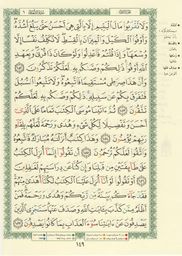 وَلَا تَقْرَبُوا۟ مَالَ ٱلْيَتِيمِ إِلَّا بِٱلَّتِى هِىَ أَحْسَنُ حَتَّىٰ يَبْلُغَ أَشُدَّهُۥ
وَأَوْفُوا۟ ٱلْكَيْلَ وَٱلْمِيزَانَ بِٱلْقِسْطِ لَا نُكَلِّفُ نَفْسًا إِلَّا
وُسْعَهَا وَإِذَا قُلْتُمْ فَٱعْدِلُوا۟ وَلَوْ كَانَ ذَا قُرْبَىٰ وَبِعَهْدِ ٱللَّهِ
أَوْفُوا۟ ذَٰلِكُمْ وَصَّىٰكُم بِهِۦ لَعَلَّكُمْ تَذَكَّرُونَ ١٥٢
وَأَنَّ هَٰذَا صِرَٰطِى مُسْتَقِيمًا فَٱتَّبِعُوهُ وَلَا تَتَّبِعُوا۟ ٱلسُّبُلَ
فَتَفَرَّقَ بِكُمْ عَن سَبِيلِهِۦ ذَٰلِكُمْ وَصَّىٰكُم بِهِۦ لَعَلَّكُمْ
تَتَّقُونَ ١٥٣ ثُمَّ ءَاتَيْنَا مُوسَى ٱلْكِتَٰبَ تَمَامًا عَلَى ٱلَّذِىٓ
أَحْسَنَ وَتَفْصِيلًا لِّكُلِّ شَىْءٍ وَهُدًى وَرَحْمَةً لَّعَلَّهُم بِلِقَآءِ
رَبِّهِمْ يُؤْمِنُونَ ١٥٤ وَهَٰذَا كِتَٰبٌ أَنزَلْنَٰهُ مُبَارَكٌ فَٱتَّبِعُوهُ
وَٱتَّقُوا۟ لَعَلَّكُمْ تُرْحَمُونَ ١٥٥ أَن تَقُولُوٓا۟ إِنَّمَآ أُنزِلَ ٱلْكِتَٰبُ
عَلَىٰ طَآئِفَتَيْنِ مِن قَبْلِنَا وَإِن كُنَّا عَن دِرَاسَتِهِمْ لَغَٰفِلِينَ
١٥٦ أَوْ تَقُولُوا۟ لَوْ أَنَّآ أُنزِلَ عَلَيْنَا ٱلْكِتَٰبُ لَكُنَّآ أَهْدَىٰ مِنْهُمْ
فَقَدْ جَآءَكُم بَيِّنَةٌ مِّن رَّبِّكُمْ وَهُدًى وَرَحْمَةٌ فَمَنْ
أَظْلَمُ مِمَّن كَذَّبَ بِـَٔايَٰتِ ٱللَّهِ وَصَدَفَ عَنْهَا سَنَجْزِى ٱلَّذِينَ
يَصْدِفُونَ عَنْ ءَايَٰتِنَا سُوٓءَ ٱلْعَذَابِ بِمَا كَانُوا۟ يَصْدِفُونَ ١٥٧
١٤٩